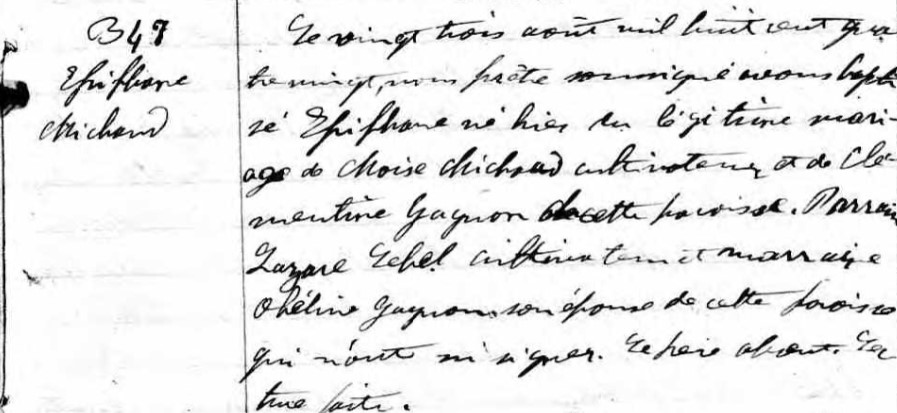 B47
Epiphane
Michaud
Le vingt trois août mil huit cent qua
tre vingt, nous prêtre soussigné avons bapti
sé Epiphane né hier du légitime mari-
age de Moise Michaud cultivateur, et de Clé-
mentine Gagnon de cette paroisse. Parrain
Lazare Lebel cultivateur et marraine
Ohéline Gagnon son épouse de cette paroisse
qui n'ont su signer. Le père absent. Lec
ture faite.